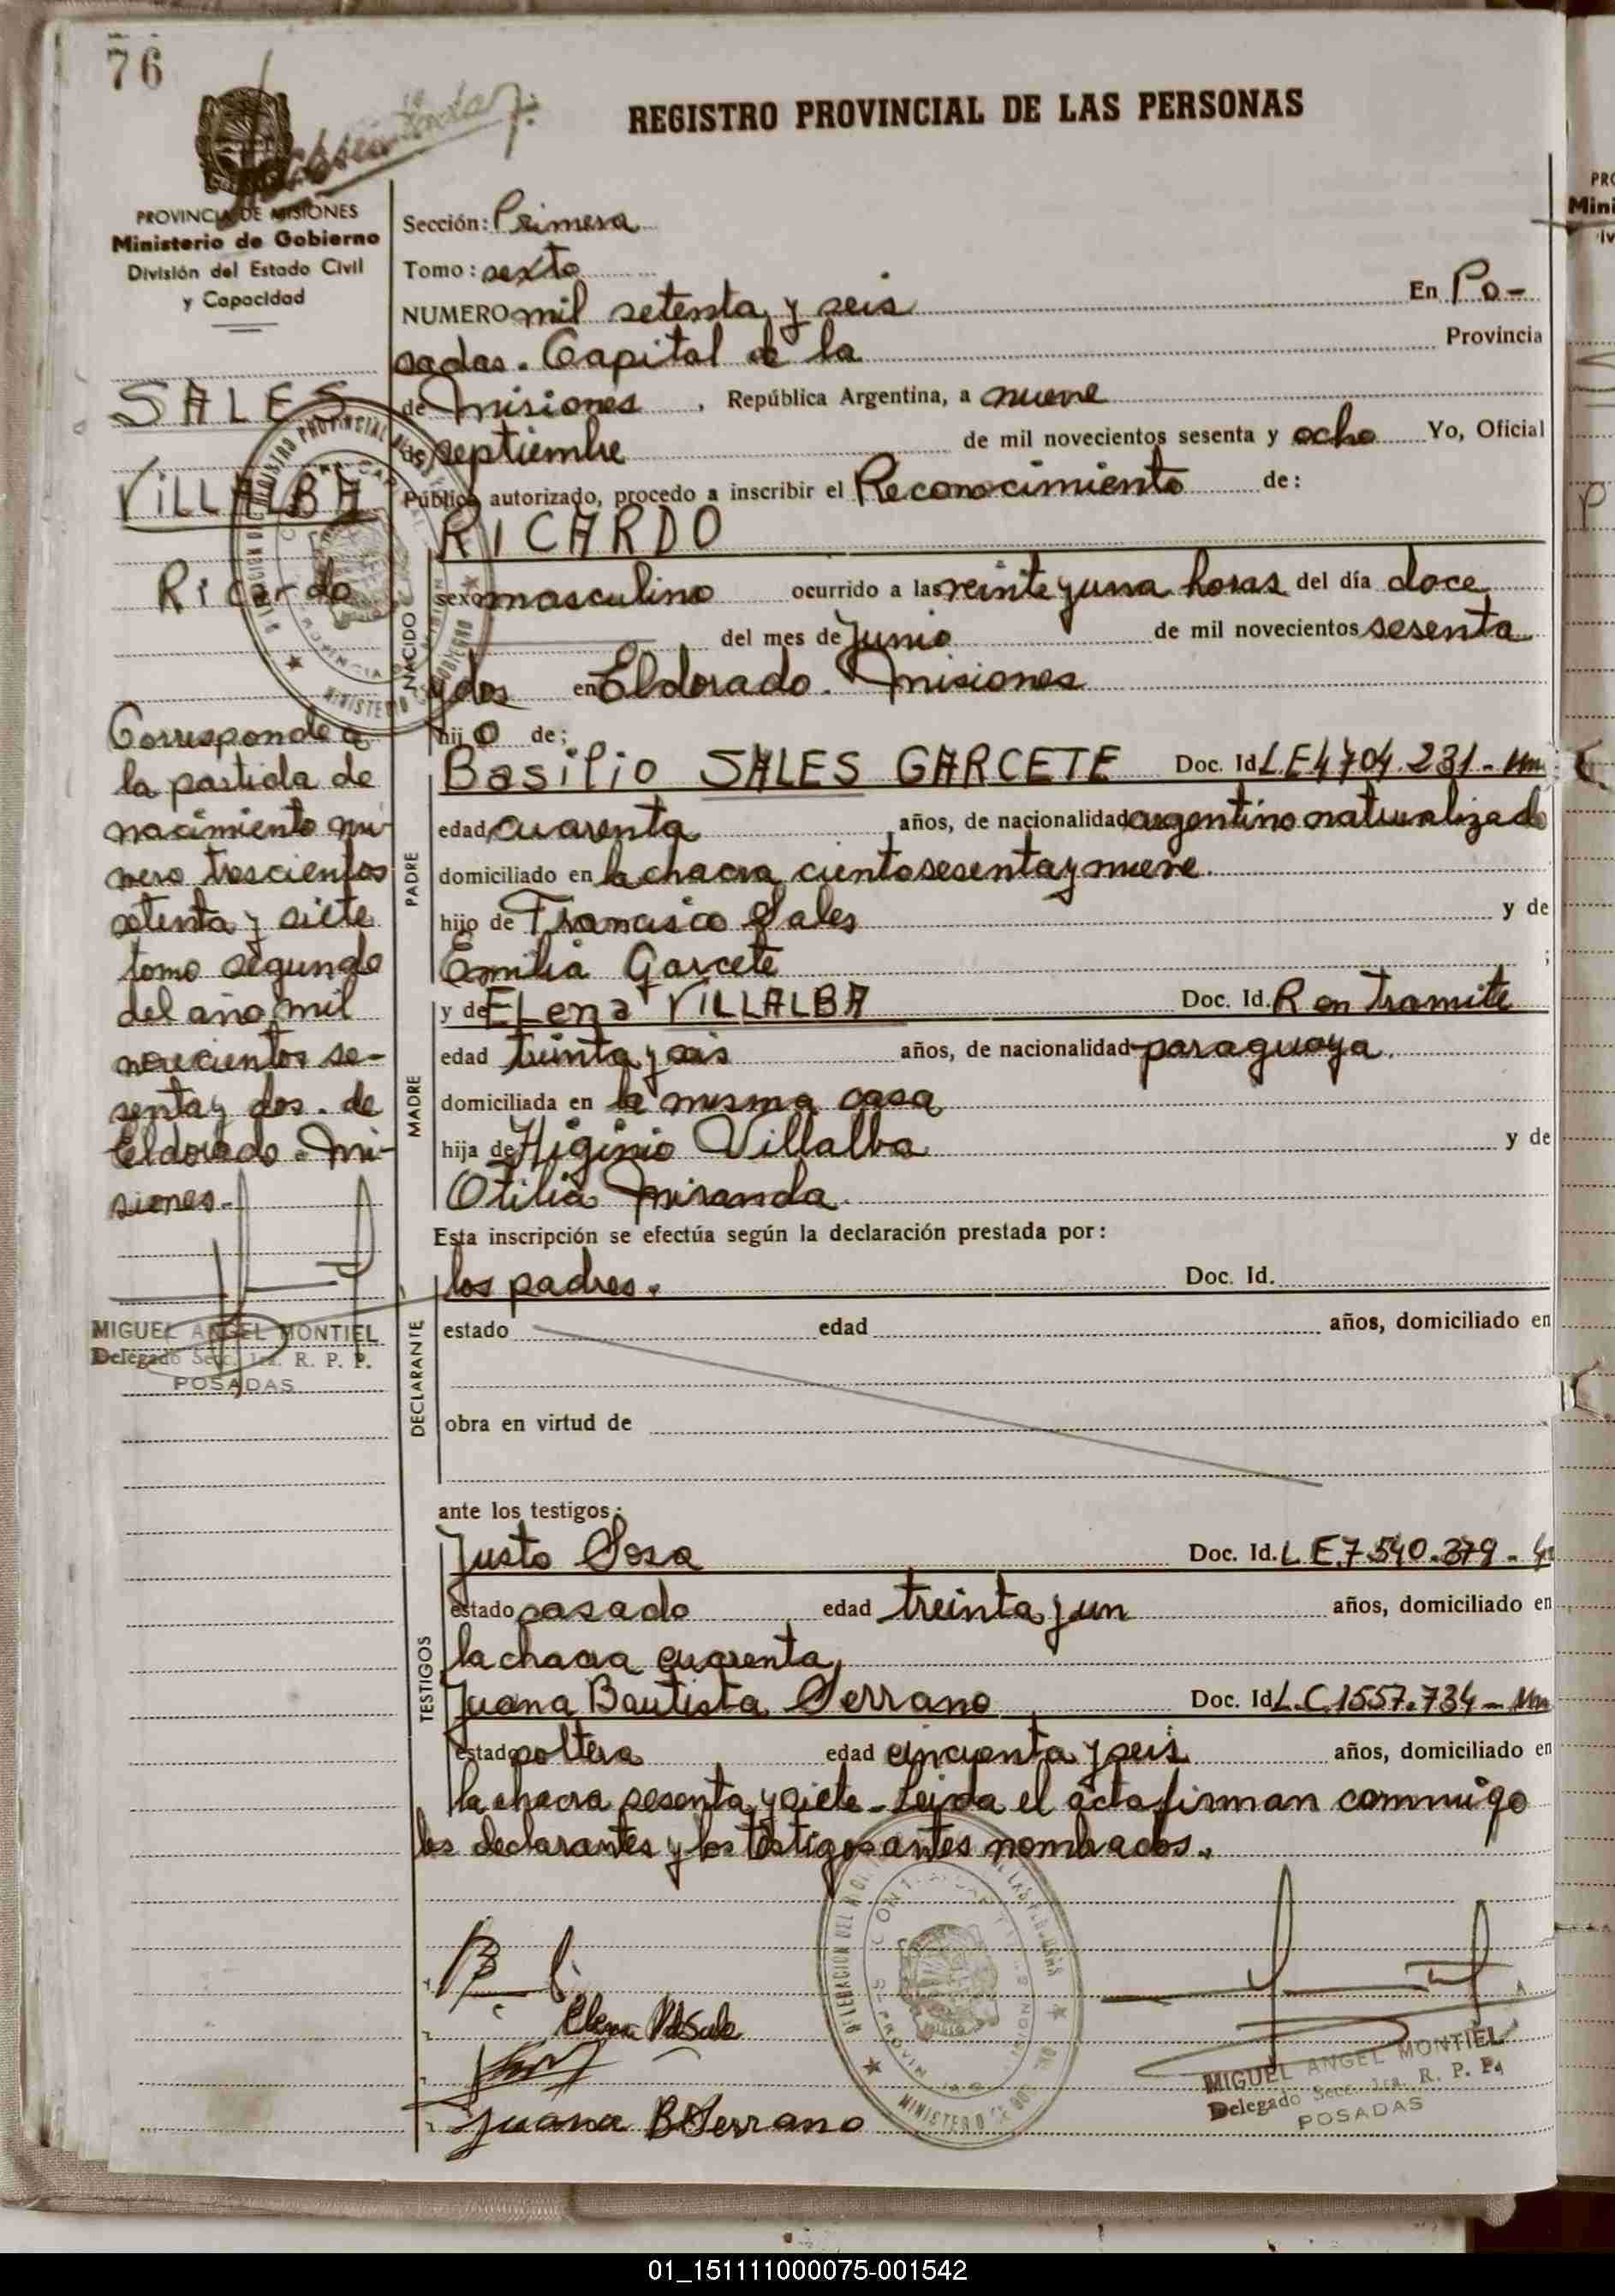 76
REGISTRO PROVINCIAL DE LAS PERSONAS
PROVINCIA DE MISIONES
Ministerio de Gobierno
División del Estado Civil
y Capacidad
SALES
VILLALBA
Ricardo
Corresponde a
la partida de
nacimiento nú-
mero trescientos
setenta y siete
tomo segundo
del año mil
novecientos se-
senta y dos. de
Eldorado. Mi-
siones.-
MIGUEL ANGEL MONTIEL
Delegado Secc. 1ra. R. P. P.
POSADAS
Sección: Primera
Tomo: sexto
NUMERO mil setenta y seis En Po-
sadas. Capital de la Provincia
de Misiones, República Argentina, a nueve
de septiembre de mil novecientos sesenta y ocho Yo, Oficial
Público autorizado, procedo a inscribir el Reconocimiento de:
RICARDO
NACIDO
sexo masculino ocurrido a las veinte y una horas del día doce
del mes de Junio de mil novecientos sesenta
y dos en Eldorado. Misiones
hijo de;
PADRE
Basilio SALES GARCETE Doc. Id. LE 4704.231-
edad cuarenta años, de nacionalidad argentino naturalizado
domiciliado en la chacra ciento sesenta y nueve
hijo de Francisco Sales y de
Emilia Garcete ;
MADRE
y de ELena VILLALBA Doc. Id. R en tramite
edad treinta y seis años, de nacionalidad paraguaya.
domiciliada en la misma casa
hija de Higinio Villalba y de
Otilia Miranda.
Esta inscripción se efectúa según la declaración prestada por:
DECLARANTE
los padres. Doc. Id.
estado edad años, domiciliado en
obra en virtud de
ante los testigos:
TESTIGOS
Justo Sosa Doc. Id. L E 7.540.379.
estado casado edad treinta y un años, domiciliado en
la chacra cuarenta,
Juana Bautista Serrano Doc. Id. L.C.1557.734-
estado soltera edad cincuenta y seis años, domiciliado en
la chacra sesenta y siete- Leida el acta firman conmigo
los declarantes y los testigos antes nombrados.
Elena V de Sale
Juana B Serrano
MIGUEL ANGEL MONTIEL
Delegado Secc. 1ra. R. P. P.
POSADAS
01_151111000075-001542